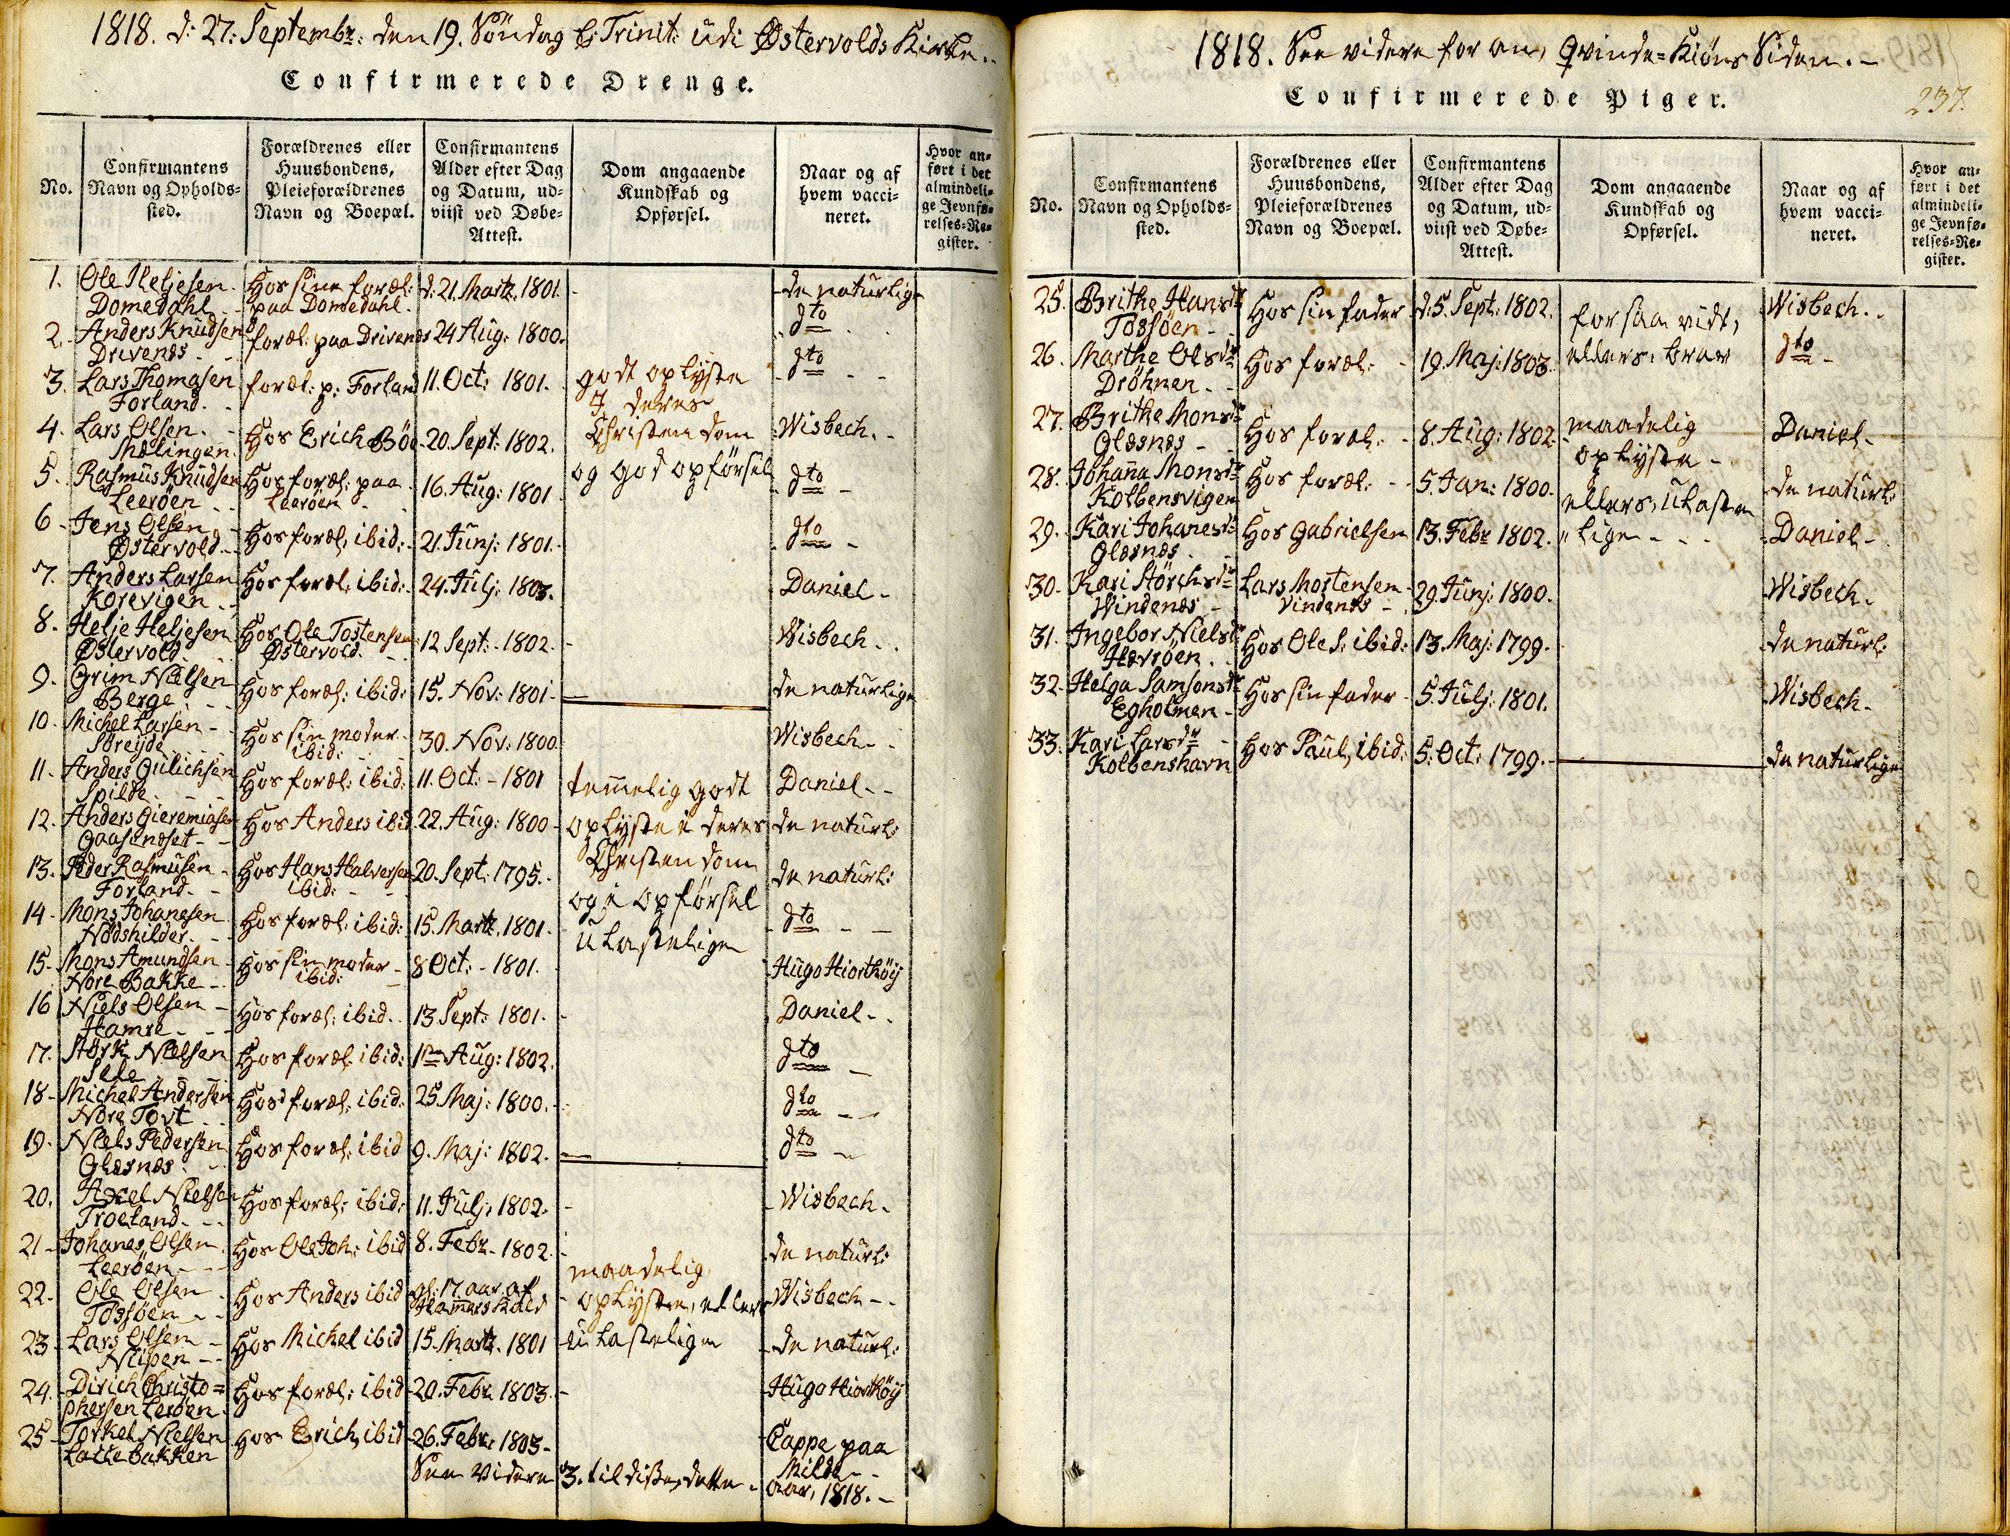 1818. d: 27: Septembr: den 19. Söndag E: Trinit: udi Østervolds Kirke.
Confirmerede Drenge.
No.
Confirmantens Navn og Opholds-sted.
Forældrenes eller Huusbondens, Pleieforældrenes Navn og Boepæl.
Confirmantens Alder efter Dag og Datum, ud-viist ved Døbe-Attest.
Dom angaaende Kundskab og Opførsel.
Naar og af hvem vacci-neret.
Hvor an-ført i det almindeli-ge Jevnfø-relses-Re-gister.
1. Ole Heljesen Domedahl. Hos sine foræl: paa Domedahl. d: 21 Martz. 1801. de naturlige
2. Anders Knudsen Drivenes foræl: paa Drivenes 24 Aug: 1800. dto
3. Lars Thomasen Forland. foræl: p: Forland 11. Oct: 1801. dto
4. Lars Olsen. Hos Erich Böe 20. Sept: 1802. Wisbech.
5. Rasmus Knudsen Leeröen Hos foræl: paa Leeröen 16. Aug: 1801 dto
6 Jens Olsen Østervold Hos foræl: ibid: 21 Junj: 1801. dto
7. Anders Larsen Korevigen Hos foræl: ibid: 24. Julj: 1803. Daniel
8. Helje Heljesen Østervold Hos Ole Tostensen Østervold 12 Sept: 1802. Wisbech
9. Grim Nielsen Berge Hos foræl: ibid: 15. Nov: 1801 de naturlige
godt oplyste
I deres
Christendom
og god opförsel
10. Michel Larsen Hos sin moder ibid: 30. Nov: 1800. Wisbech
11. Anders Gulichsen Spilde Hos foræl: ibid: 11. Oct: 1801 Daniel
12. Anders Gieremiasen Gaasenæset Hos Anders ibid 22. Aug: 1800 de naturl:
13. Peder Rasmusen Forland Hos Hans Halversen ibid: 20. Sept. 1795. de naturl:
14 Mons Johanesen Nödshilder Hos foræl: ibid: 15. Martz. 1801. dto
15. Mons Amundsen Nore Bakke Hos sin moder ibid: 8 Oct: 1801. Hugo Hiorthöy
16 Niels Olsen Hamre Hos foræl: ibid 13 Sept: 1801. Daniel
17. Störk Nielsen Sele Hos foræl: ibid: 1te Aug: 1802. dto
18 Michel Andersen Nore Tovt Hos foræl: ibid: 25 Maj: 1800. dto
19. Niels Pedersen Glæsnæs Hos foræl: ibid 9. Maj: 1802. dto
temmelig godt
oplyste i deres
Christendom
og i opförsel
ulastelige
20. Axel Nielsen Troeland Hos foræl: ibid: 11. Julj: 1802. Wisbech
21 Johanes Olsen Leeröen Hos Ole Joh: ibid 8. Febr. 1802. de naturl:
22. Ole Olsen Tøssöen Hos Anders ibid gl: 17 aar af Wisbech
23 Lars Olsen Nipen Hos Michel ibid 15. Martz. 1801 de naturl:
24. Dirich Christo=phersen Leröen Hos foræl: ibid 20. Febr. 1803. Hugo Hiorthöy
25 Torkel Nielsen Latte bakken Hos Erich, ibid 26. Febr. 1803. Cappe paa Milde
maadelig
oplyste, ellers
ulastelige
See Videre 3. til diße, dette aar, 1818.
1818. See videre for an, Qvinde=Kiøns Siden.
237.
Confirmerede Piger.
No.
Confirmantens Navn og Opholds-sted.
Forældrenes eller Huusbondens, Pleieforældrenes Navn og Boepæl.
Confirmantens Alder efter Dag og Datum, ud-viist ved Døbe-Attest.
Dom angaaende Kundskab og Opførsel.
Naar og af hvem vacci-neret.
Hvor an-ført i det almindeli-ge Jevnfø-relses-Re-gister.
25. Brithe Hansdr Tøssöen Hos sin fader d: 5. Sept: 1802. Wisbech
26. Marthe Olsdr Dröhnen Hos foræl: 19. Maj: 1803. dto
forsaa vidt,
ellers, brav
27. Brithe Monsdr Glæsnæs Hos foræl: 8. Aug: 1802 Daniel
28. Johanna Monsdr Kolbensvigen Hos foræl: 5. Jan: 1800. de naturl:
29. Kari Johanesdr Glæsnæs Hos Gabrielsen 13. Febr. 1802. Daniel
30. Kari Störchsdr Windenæs Lars Mortensen Vindenæs 29. Junj: 1800. Wisbech
31. Ingebor Nielsdr Hævröen Hos Ole S: ibid: 13. Maj: 1799. de naturl:
32. Helga Samsonsdr Egholmen Hos sin fader 5. Julj: 1801. Wisbech
33. Kari Larsdr Kolbenshavn Hos Paul, ibid: 5: Oct: 1799. de naturlige
maadelig
oplyste
ellers, ulaste
" lige